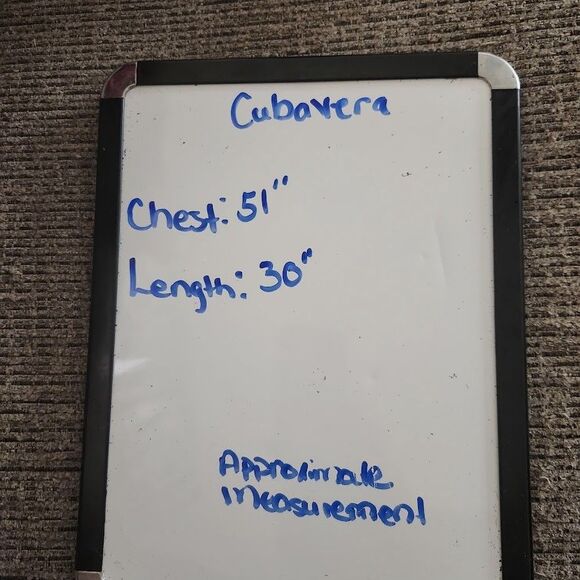 Cubavera
Chest: 51"
Length: 30"
Approximate
measurement